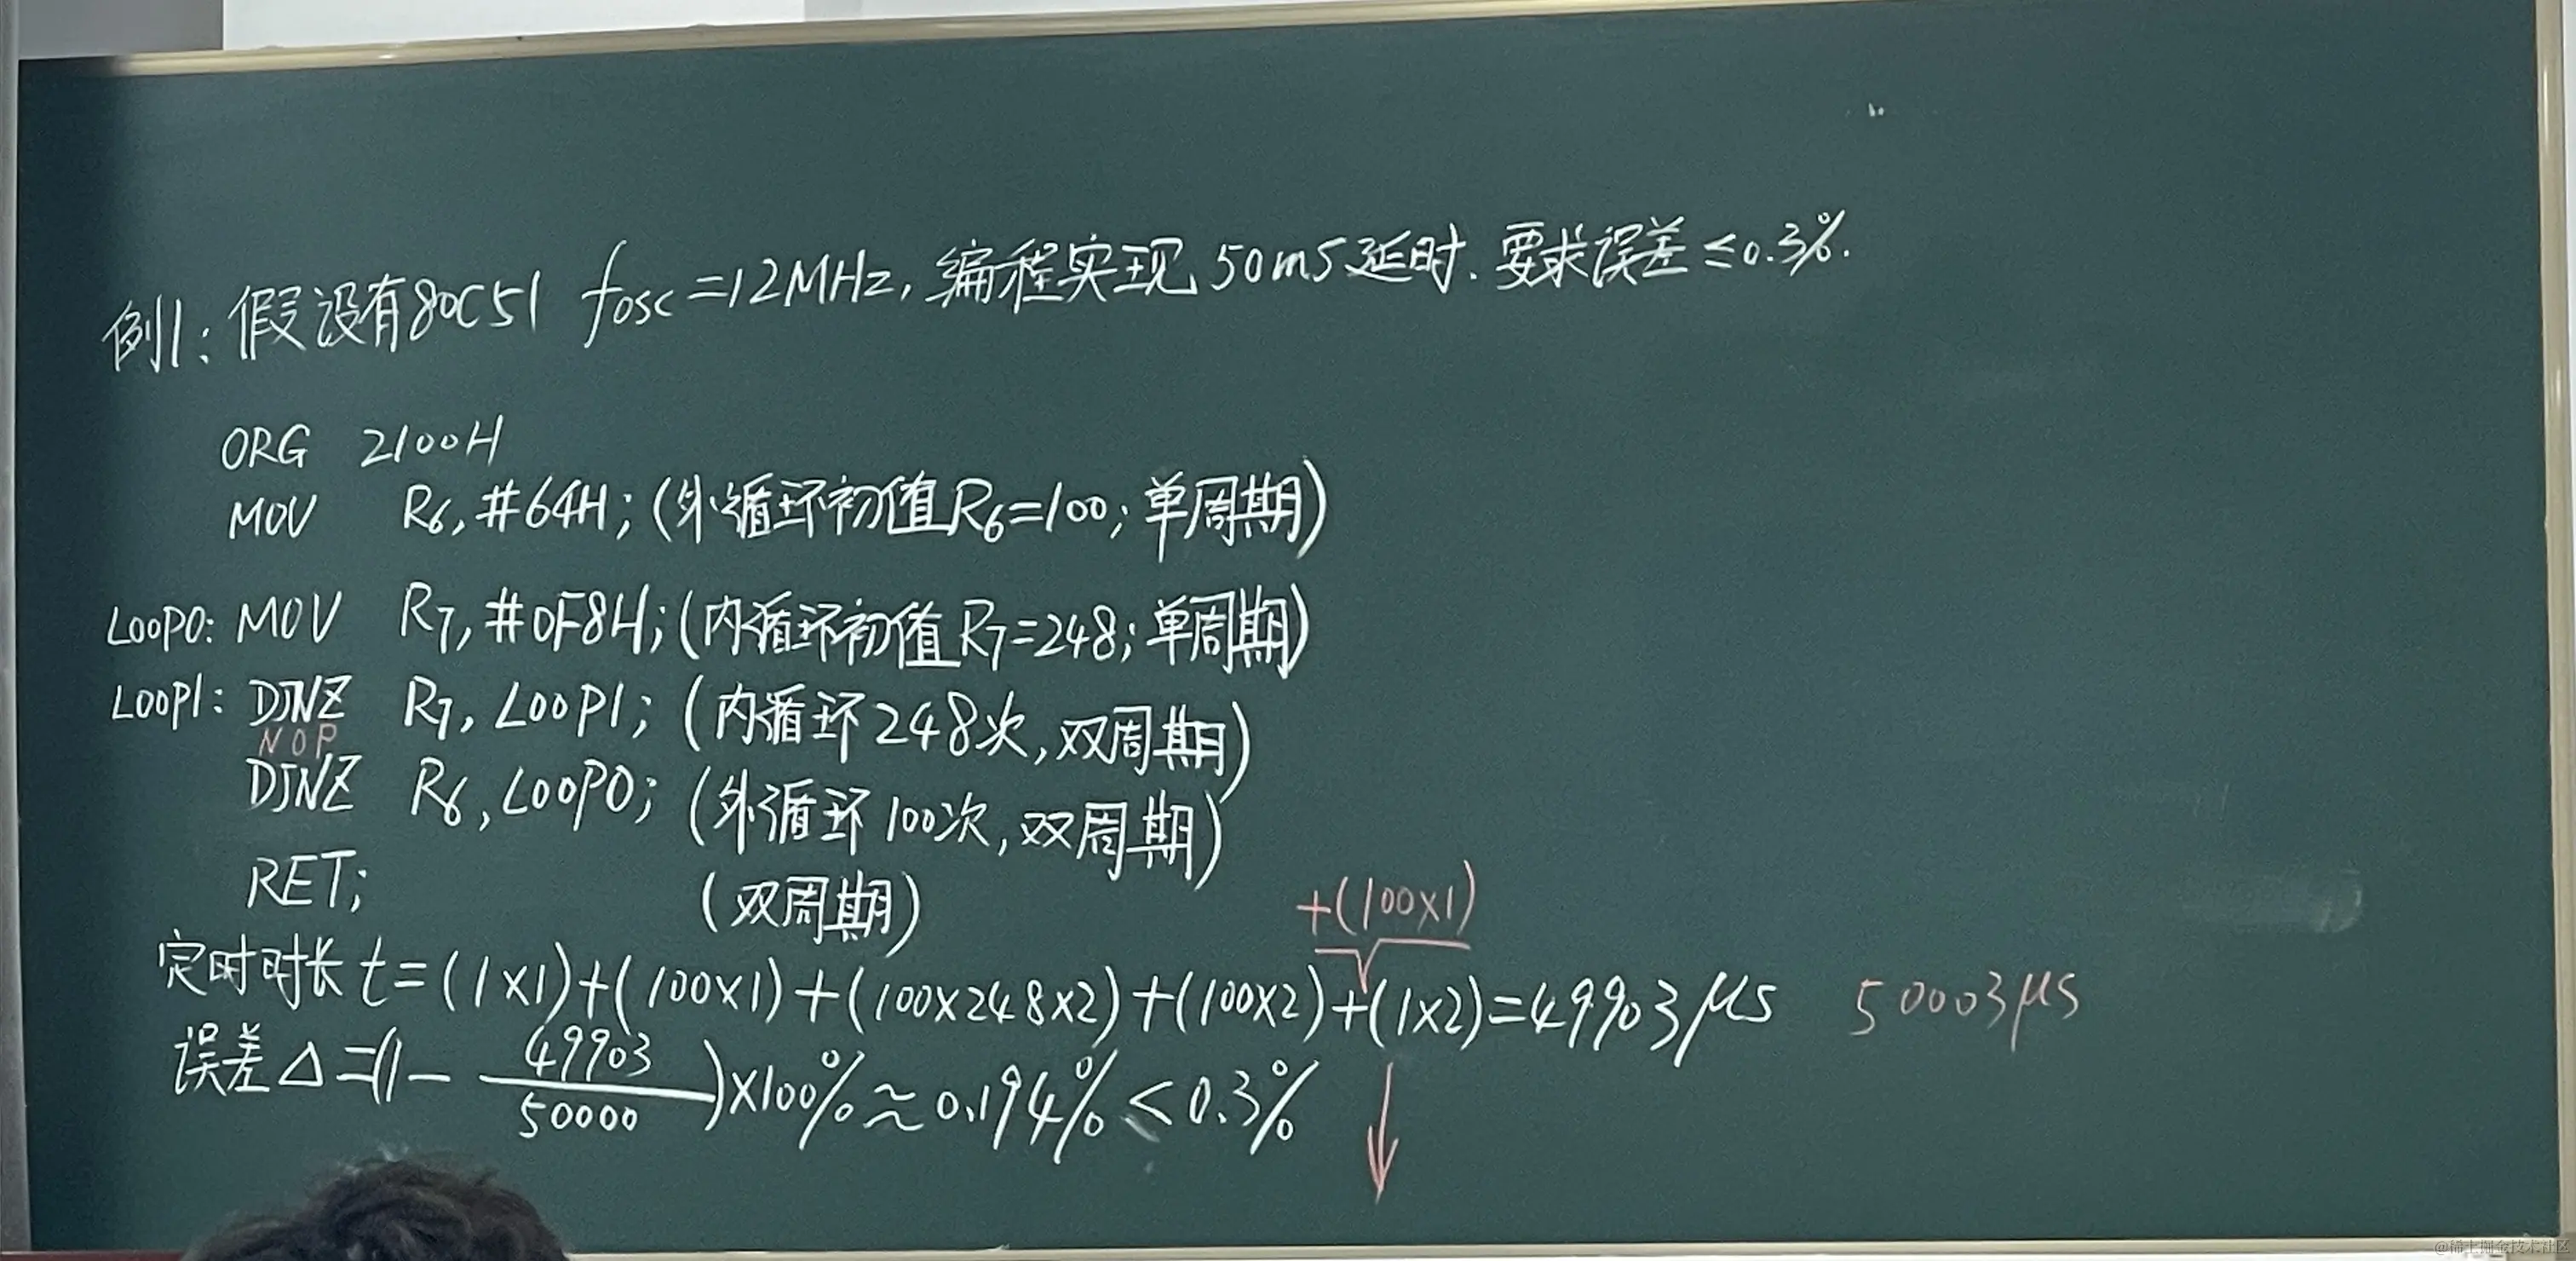 例1：假设有80C51 fosc=12MHz，编程实现50mS延时.要求误差≤0.3%.
ORG 2100H
MOV R6,#64H;(外循环初值R6=100;单周期)
LOOP0: MOV R7,#0F8H;(内循环初值R7=248;单周期)
LOOP1: DJNZ R7,LOOP1;(内循环248次,双周期)
NOP
DJNZ R6,LOOP0;(外循环100次,双周期)
RET; (双周期)
+(100×1)
定时时长t=(1×1)+(100×1)+(100×248×2)+(100×2)+(1×2)=49903μs 50003μs
误差Δ=(1-49903/50000)×100%≈0.194%<0.3%
@稀土掘金技术社区